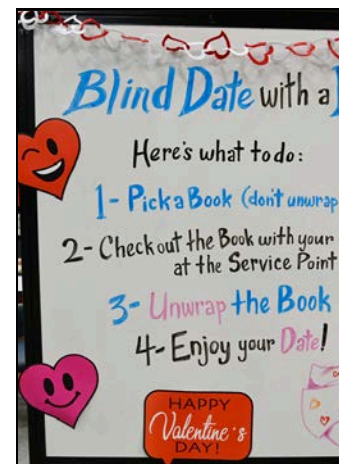 Blind Date with a
Here's what to do:
1- Pick a Book (don't unwrap
2- Check out the Book with your
at the Service Point
3- Unwrap the Book
4- Enjoy your Date!
HAPPY
Valentine's
DAY!